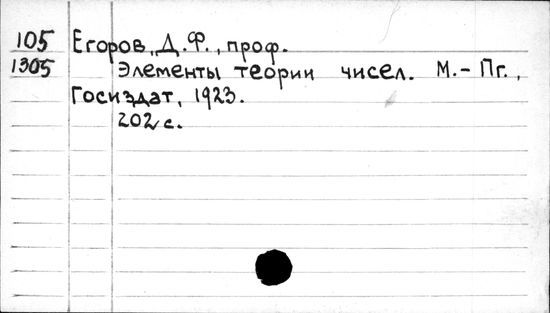 105 Егоров, Д.Ф., проф.
1305 Элементы теории чисел. М.-Пг.,
Госиздат, 1923.
202 с.